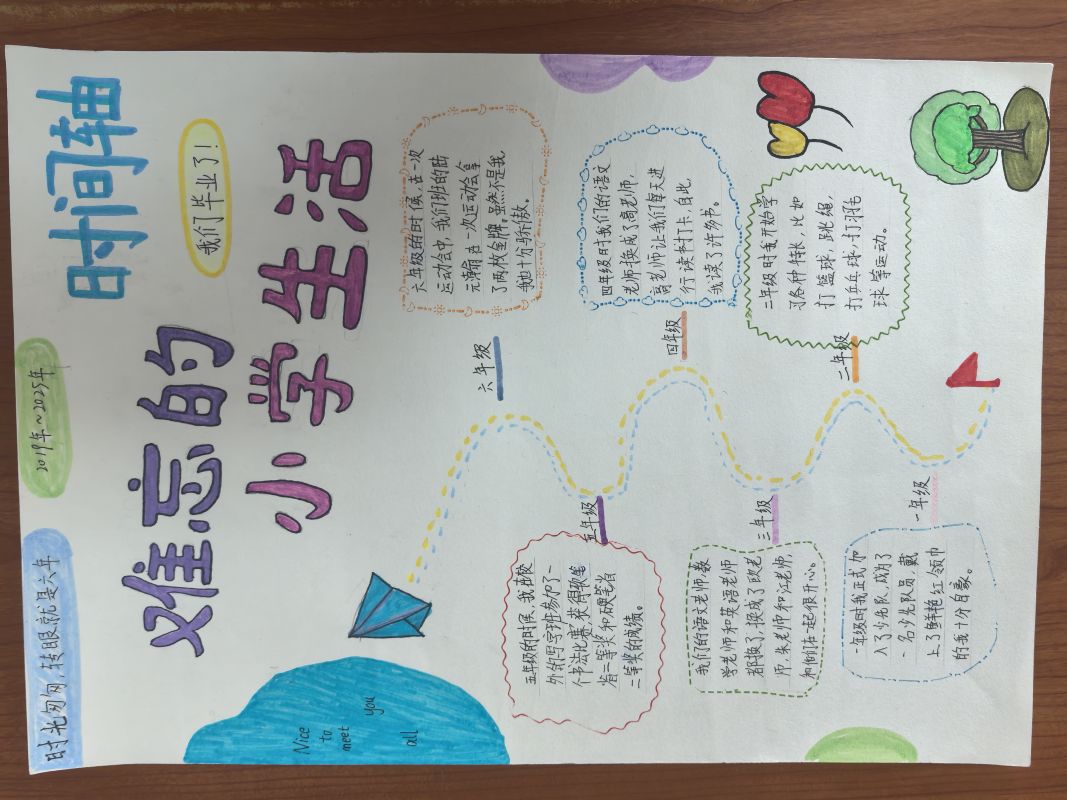 时光匆匆,转眼就是六年
2019年~2025年
时间轴
难忘的
我们毕业了!
小学生活
Nice
to
meet
you
all
六年级
六年级的时候,在一次
运动会中,我们班的陆
元翰在一次运动会拿
了两枚金牌,虽然不是我,
我也十分骄傲。
五年级
五年级的时候,我在校
外的写字班参加了一
个书法比赛,获得软笔
省二等奖和硬笔省
二等奖的成绩。
四年级
四年级时我们的语文
老师换成了高老师,
高老师让我们每天进
行读书打卡,自此,
我读了许多书。
三年级
我们的语文老师,数
学老师和英语老师
都换了,换成了欧老
师,朱老师和江老师,
和他们在一起很开心。
二年级
二年级时我开始学
习各种特长,比如
打篮球,跳绳,
打乒乓球,打羽毛
球等运动。
一年级
一年级时我正式加
入了少先队,成为了
一名少先队员,戴
上了鲜艳红领巾
的我十分自豪。